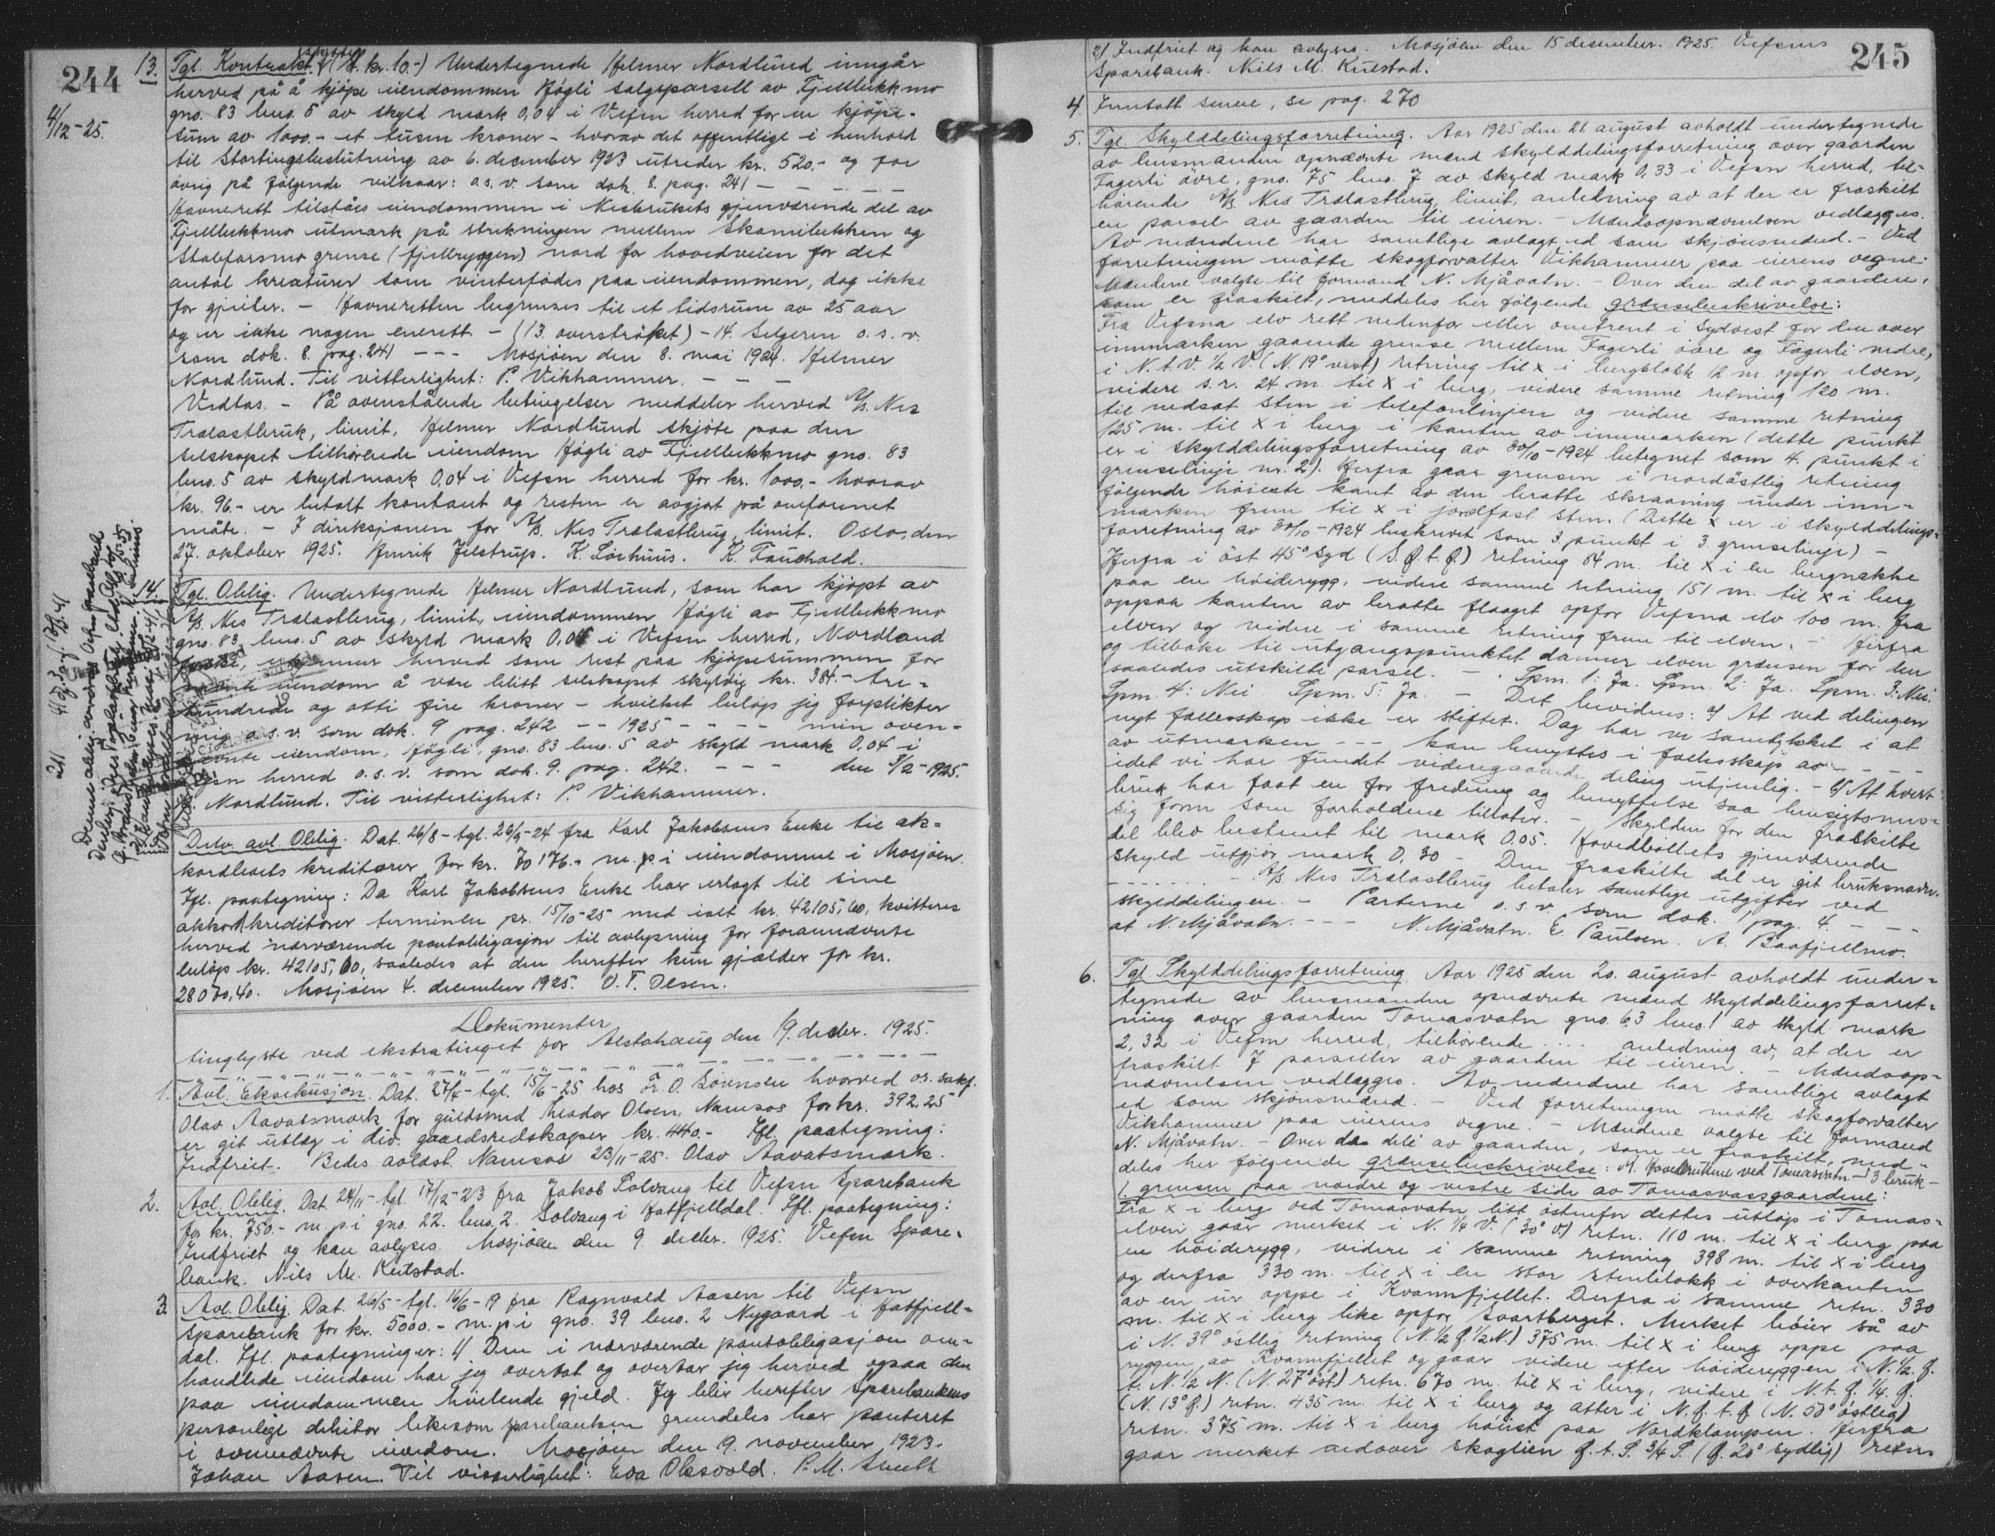 244
4/12-25.
13. Tgl. Kontrakt (St. kr. 10.-) Undertegnede Helmer Nordlund inngår
herved på å kjöpe eiendommen Högli salgsparsell av Fjellbekkmo
gno. 83 bno. 5 av skyld mark 0,04 i Vefsn herred for en kjöpe-
sum av 1000.- et tusen kroner - hvorav det offentlige i henhold
til Stortingsbeslutning av 6. december 1923 utreder kr. 520.- og for
övrig på fölgende vilkaar: o.s.v. som dok. 8. pag. 241 — — — — —
Havnerett tilståes eiendommen i Nesbrukets gjenværende del av
Fjellbekkmo utmark på strekningen mellem Skamibekken og
Stalforsmo grense (fjellryggen) nord for hovedveien for det
antal kreaturer som vinterfödes paa eiendommen, dog ikke
for gjeiter. - Havneretten begrenses til et tidsrum av 25 aar
og er ikke nogen enerett - (13 overströket) - 14. Selgeren o.s.v.
som dok. 8. pag. 241 - - - Mosjöen den 8. mai 1924. Helmer
Nordlund. Til vitterlighet: P. Vikhammer. — — —
Vedtas. - På ovenstående betingelser meddeler herved A/S. Nes
Trælastbruk, limit, Helmer Nordlund skjöte paa den
selskapet tilhörende eiendom Högli av Fjellbekkmo gno. 83
bno. 5 av skyldmark 0,04 i Vefsn herred for kr. 1000.- hvorav
kr. 96.- er betalt kontant og resten er avgjort på ovefornet
måte. - I direksjonen for A/S. Nes Trælastbrug, limit. Oslo, den
27. oktober 1925. Henrik Jelstrup. K. Sörhuus. K. Fauchald.
14. Tgl. Oblig. Undertegnede Helmer Nordlund, som har kjöpt av
A/S. Nes Trælastbrug, limit, eiendommen Högli av Fjellbekkmo
gno. 83 bno. 5 av skyld mark 0,04 i Vefsn herred, Nordland
fylke, erkjenner herved som rest paa kjöpesummen for
nævnte eiendom å være blitt selskapet skyldig kr. 384.- tre-
hundrede og otti fire kroner - hvilket belöp jeg forplikter
mig o.s.v. som dok. 9 pag. 242 - - 1925 - - - - min oven-
nævnte eiendom, Högli, gno. 83 bno. 5 av skyld mark 0,04 i
Vefsn herred o.s.v. som dok. 9. pag. 242. - - - den 3/2-1925.
H. Nordlund. Til vitterlighet: P. Vikhammer.
Delv. avl. Oblig. Dat. 26/8 - tgl. 26/9-24 fra Karl Jakobsens Enke til ak-
kordboets kreditorer for kr. 70 176.- m.p. i eiendomme i Mosjöen.
Ifl. paategning: Da Karl Jakobsens Enke har erlagt til sine
akkordkreditorer terminen pr. 15/10-25 med ialt kr. 42105,60, kvitteres
herved nærværende pantobligasjon til avlysning for forannævnte
belöp kr. 42105,60, saaledes at den herefter kun gjælder for kr.
28070,40. Mosjöen 4. december 1925. O. T. Olsen.
Dokumenter
tinglyste ved ekstratinget for Alstahaug den 19. decbr. 1925.
1. Avl. Eksekusjon. Dat. 27/4 - tgl. 15/6-25 hos o.r. O. Sörensen hvorved o.r. sakf.
Olav Aavatsmark for guldsmed Theodor Olsen, Namsos for kr. 392,25
er git utlæg i div. gaardsredskaper kr. 440.- Ifl. paategning:
Indfriet. Bedes avlöst. Namsos 23/11-25. Olav Aavatsmark.
2. Avl. Oblig. Dat. 24/11 - tgl. 17/12-23 fra Jakob Solvang til Vefsn Sparebank
for kr. 750.- m.p. i gno. 22. bno. 2. Solvang i Hatfjelldal. Ifl. paategning:
Indfriet og kan avlyses. Mosjöen den 9. decbr. 1925. Vefsn Spare-
bank. Nils M. Kulstad.
3. Avl. Oblig. Dat. 26/5 - tgl. 16/6-19 fra Ragnvald Aasen til Vefsn
Sparebank for kr. 5000.- m.p. i gno. 39 bno. 2 Nygaard i Hatfjell-
dal. Ifl. paategninger: 1) Den i nærværende pantobligasjon om-
handlede eiendom har jeg overtat og overtar jeg herved ogsaa den
paa eiendommen hvilende gjeld. Jeg blir herefter Sparebankens
personlige debitor likesom sparebanken fremdeles har panteret
i ovennævnte eiendom. Mosjöen den 19. november 1923.
Johan Aasen. Til vitterlighet: Eva Olsvold. P. M. Smeth
245
2) Indfriet og kan avlyses. Mosjöen den 15 desember. 1925. Vefsns
Sparebank. Nils M. Kulstad.
4. Inntatt senere, se pag. 270
5. Tgl. Skylddelingsforretning. Aar 1925 den 21. august avholdt undertegnede
av lensmanden opnævnte mænd skylddelingsforretning over gaarden
Fagerli övre, gno. 75 bno. 7 av skyld mark 0,33 i Vefsn herred, til-
hörende A/S Nes Trælastbrug, limit, anledning av at der er fraskilt
en parsel av gaarden til eieren. - Mændsopnævnelsen vedlægges.
Av mændene har samtlige avlagt ed som skjönsmænd. - Ved
forretningen mötte skogforvalter Vikhammer paa eierens vegne.
Mændene valgte til formand N. Mjåvatn. - Over den del av gaarden,
som er fraskilt, meddeles her fölgende grænsebeskrivelse:
Fra Vefsna elv rett nedenfor eller omtrent i Sydvest for den over
innmarken gaaende grense mellem Fagerli övre og Fagerli nedre,
i N. t. V. 1/2 V. (N. 19° vest) retning til x i bergblokk 12 m. opfor elven,
videre s.r. 24 m. til x i berg, videre samme retning 120 m.
til nedsat sten i telefonlinjen og videre samme retning
125 m. til x i berg i kanten av innmarken (dette punkt
er i skylddelingsforretning av 30/10-1924 betegnet som 4. punkt i
grenselinje nr. 2). Herfra gaar grensen i nordöstlig retning
fölgende höieste kant av den bratte skraaning under inn-
marken frem til x i jordfast sten. (Dette x er i skylddelings-
forretning av 30/10-1924 beskrevet som 3. punkt i 3. grenselinje) -
Herfra i öst 45° Syd (S.Ö.t.Ö.) retning 54 m. til x i en bergnakke
paa en höiderygg, videre samme retning 151 m. til x i berg
oppaa kanten av bratte flaaget opfor Vefsna elv 100 m. fra
elven og videre i samme retning frem til elven. - Herfra
og tilbake til utgangspunktet danner elven grænsen for den
saaledes utskilte parsel. - . Spm. 1: Ja. Spm. 2: Ja. Spm. 3: Nei.
Spm. 4: Nei. Spm. 5: Ja. - Det bevidnes: a) At ved delingen
nyt fællesskap ikke er stiftet. Dog har vi samtykket i at
av utmarken - - - kan benyttes i fællesskap av - - - -
idet vi har fundet videregaaende deling utjenlig. - b) At hvert
bruk har faat en for fredning og benyttelse saa hensigtsmæs-
sig form som forholdene tillater. - Skylden for den fraskilte
del blev bestemt til mark 0,05. Hovedbölets gjenværende
skyld utgjör mark 0,30 - Den fraskilte del er git bruksnavn.
- - - - - - A/S. Nes Trælastbrug betaler samtlige utgifter ved
skylddelingen. - Parterne o.s.v. som dok. 1 pag. 4. - - -
at N. Mjåvatn. - - - N. Mjåvatn. E. Paulsen. A. Baafjellmo.
6. Tgl. Skylddelingsforretning. Aar 1925 den 20. august avholdt under-
tegnede av lensmanden opnævnte mænd skylddelingsforret-
ning over gaarden Tomasvatn gno. 63 bno. 1 av skyld mark
2,32 i Vefsn herred, tilhörende .... anledning av, at der er
fraskilt 7 parseller av gaarden til eieren. - Mændsop-
nævnelsen vedlægges. Av mændene har samtlige avlagt
ed som skjönsmænd. - Ved forretningen mötte skogforvalter
Vikhammer paa eierens vegne. - Mændene valgte til formand
N. Mjåvatn. - Over de dele av gaarden, som er fraskilt, med-
deles her fölgende grænsebeskrivelse: A. Hovedbrukene ved Tomasvatn - 3 bruk -
1. grensen paa nordre og vestre side av Tomasvassgaardene:
Fra x i berg ved Tomasvatn litt östenfor dettes utlöp i Tomas-
elven gaar merket i N. 1/4 V. (30° v.) retn. 110 m. til x i berg paa
en höiderygg, videre i samme retning 398 m. til x i berg
og derfra 330 m. til x i en stor stenblokk i overkanten
av en ur oppe i Kvannfjellet. Derfra i samme retn. 330
m. til x i berg like opfor Svartberget. Merket böier så av
i N. 39° östlig retning (N. 1/2 Ö. 1/2 N.) 375 m. til x i berg oppe paa
ryggen av Kvannfjellet og gaar videre efter höideryggen i N. 1/2. Ö.
t. N. 1/2 N. (N 27° öst.) retn. 670 m. til x i berg, videre i N. t. Ö. 1/4. Ö.
(N. 13° ö.) retn. 435 m. til x i berg og atter i N. Ö. t. Ö (N. 50° östlig)
retn. 375 m. til x i berg höiest paa Nordklampen. Herfra
gaar merket nedover skoglien Ö. t. S. 3/4 S. (Ö. 20° sydlig) retn.